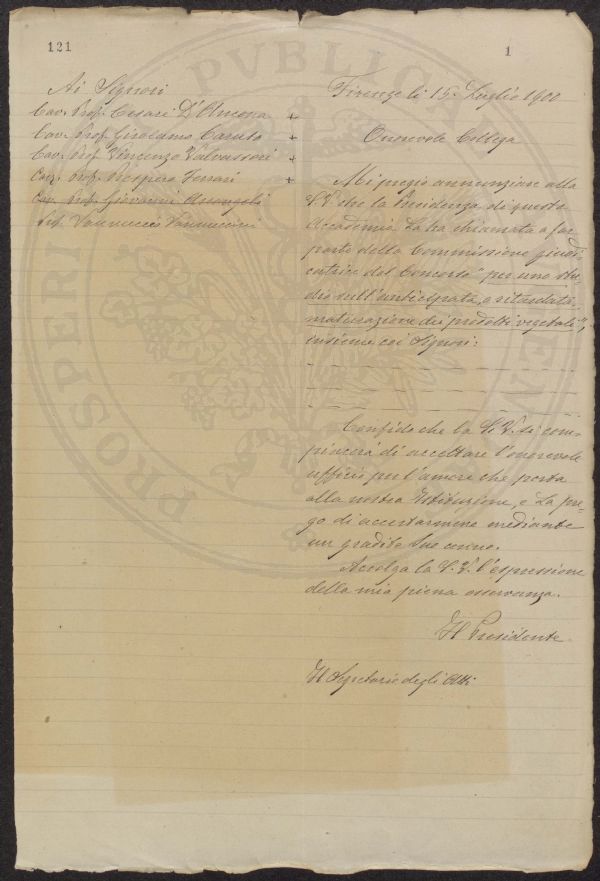 121
1
Ai Signori
Cav. Prof. Cesare D'Ancona +
Cav. Prof. Girolamo Caruso +
Cav. Prof. Vincenzo Valvassori +
Cav. Prof. Prospero Ferrari +
Cav. Prof. Giovanni Arcangeli
Vannuccio Vannuccini
Firenze li 15 Luglio 1900
Onorevole Collega
Mi pregio annunziare alla
S.V. che la Presidenza di questa
Accademia La ha chiamata a far
parte della Commissione giudi-
catrice del Concorso "per uno stu-
dio sull'anticipata, o ritardata
maturazione dei prodotti vegetali",
insieme coi Signori:
Confido che la S.V. si com-
piacerà di accettare l'onorevole
ufficio per l'amore che porta
alla nostra Istituzione, e La pre-
go di accertarmene mediante
un gradito Suo cenno.
Accolga la S.V. l'espressione
della mia piena osservanza.
Il Presidente
Il Segretario degli Atti
PROSPERI
PVBLICA